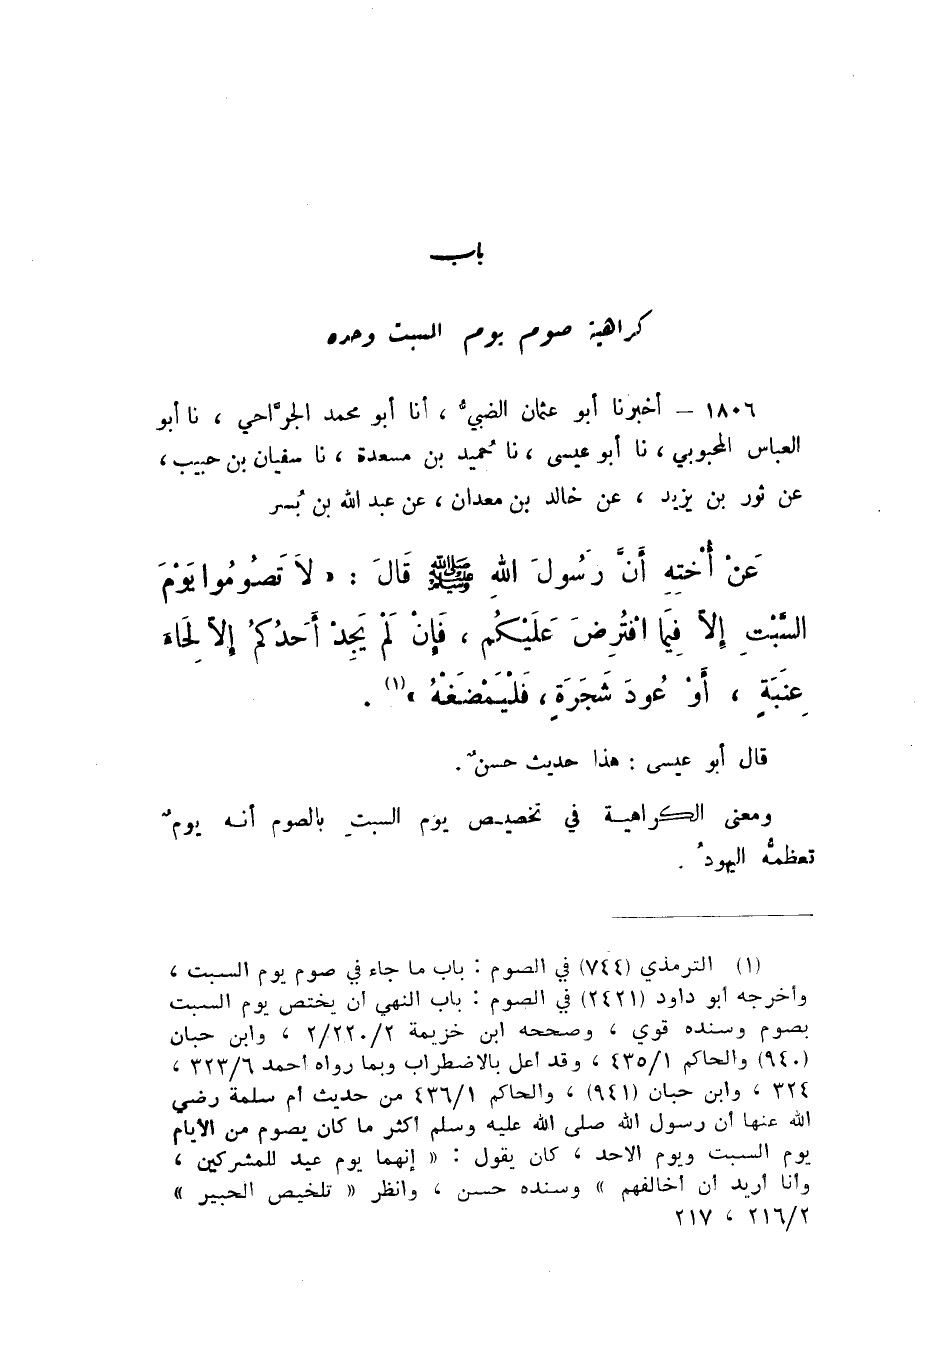 باب
كراهية صوم يوم السبت وحده
١٨٠٦ – أخبرنا أبو عثمان الضبيُّ ، أنا أبو محمد الجرَّاحي ، نا أبو
العباس المحبوبي ، نا أبو عيسى ، نا حُميد بن مسعدة ، نا سفيان بن حبيب ،
عن ثور بن يزيد ، عن خالد بن معدان ، عن عبد الله بن بُسر
عَنْ أُخْتِهِ أَنَّ رَسُولَ اللهِ ﷺ قَالَ : « لاَ تَصُومُوا يَوْمَ
السَّبْتِ إِلاَّ فِيمَا افْتُرِضَ عَلَيْكُم ، فَإِنْ لَمْ يَجِدْ أَحَدُكُمْ إِلاَّ لِحَاءَ
عِنَبَةٍ ، أَوْ عُودَ شَجَرَةٍ ، فَلْيَمْضَغْهُ » (١) .
قال أبو عيسى : هذا حديث حسنٌ .
ومعنى الكراهية في تخصيص يوم السبتِ بالصوم أنه يومٌ
تعظمُّه اليهودُ .
(١) الترمذي (٧٤٤) في الصوم : باب ما جاء في صوم يوم السبت ،
وأخرجه أبو داود (٢٤٢١) في الصوم : باب النهي أن يختص يوم السبت
بصوم وسنده قوي ، وصححه ابن خزيمة ٢/٢٢٠/٢ ، وابن حبان
(٩٤٠) والحاكم ٤٣٥/١ ، وقد أعل بالاضطراب وبما رواه أحمد ٣٢٣/٦ ،
٣٢٤ ، وابن حبان (٩٤١) ، والحاكم ٤٣٦/١ من حديث أم سلمة رضي
الله عنها أن رسول الله صلى الله عليه وسلم أكثر ما كان يصوم من الأيام
يوم السبت ويوم الأحد ، كان يقول : « إنهما يوم عيد للمشركين ،
وأنا أريد أن أخالفهم » وسنده حسن ، وانظر « تلخيص الحبير »
٢١٦/٢ ، ٢١٧